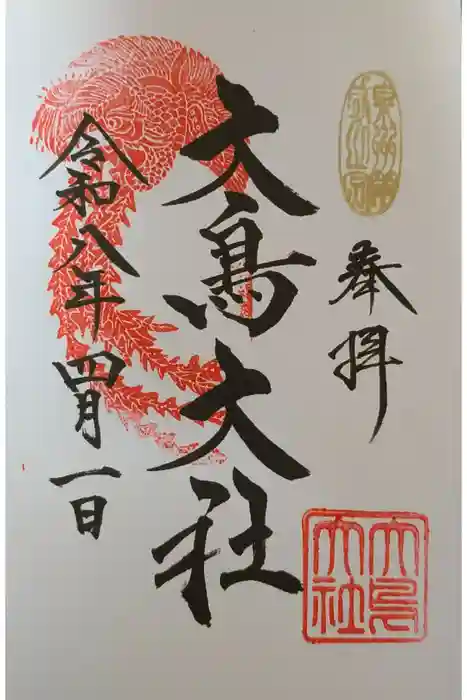 奉拝
大鳥大社
令和八年四月一日
大鳥
大社